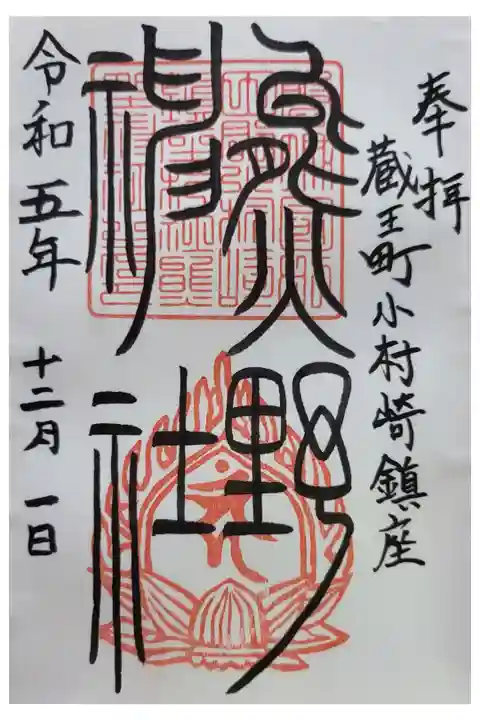 奉拝
蔵王町小村崎鎮座
熊野
神社
令和五年 十二月一日